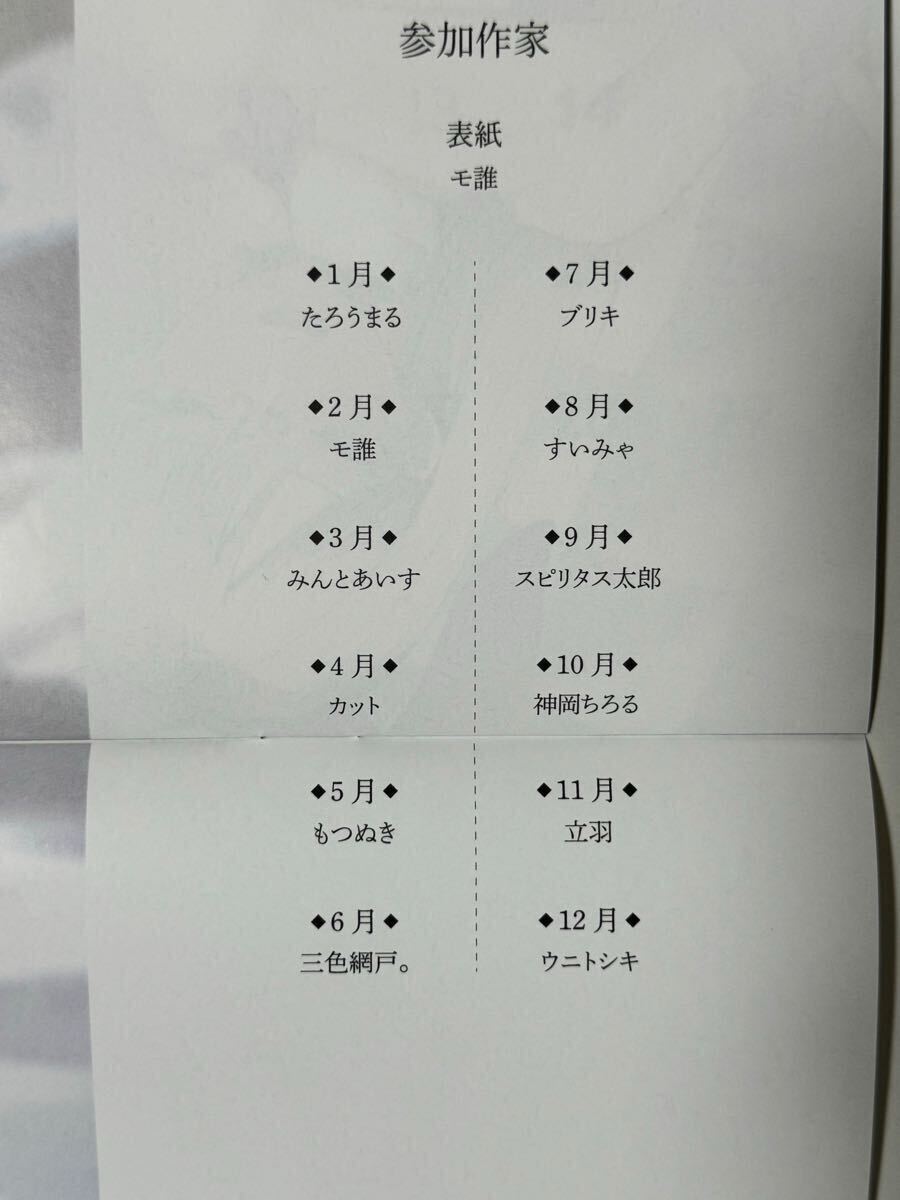 参加作家
表紙
モ誰
◆1月◆
たろうまる
◆2月◆
モ誰
◆3月◆
みんとあいす
◆4月◆
カット
◆5月◆
もつぬき
◆6月◆
三色網戸。
◆7月◆
ブリキ
◆8月◆
すいみゃ
◆9月◆
スピリタス太郎
◆10月◆
神岡ちろる
◆11月◆
立羽
◆12月◆
ウニトシキ